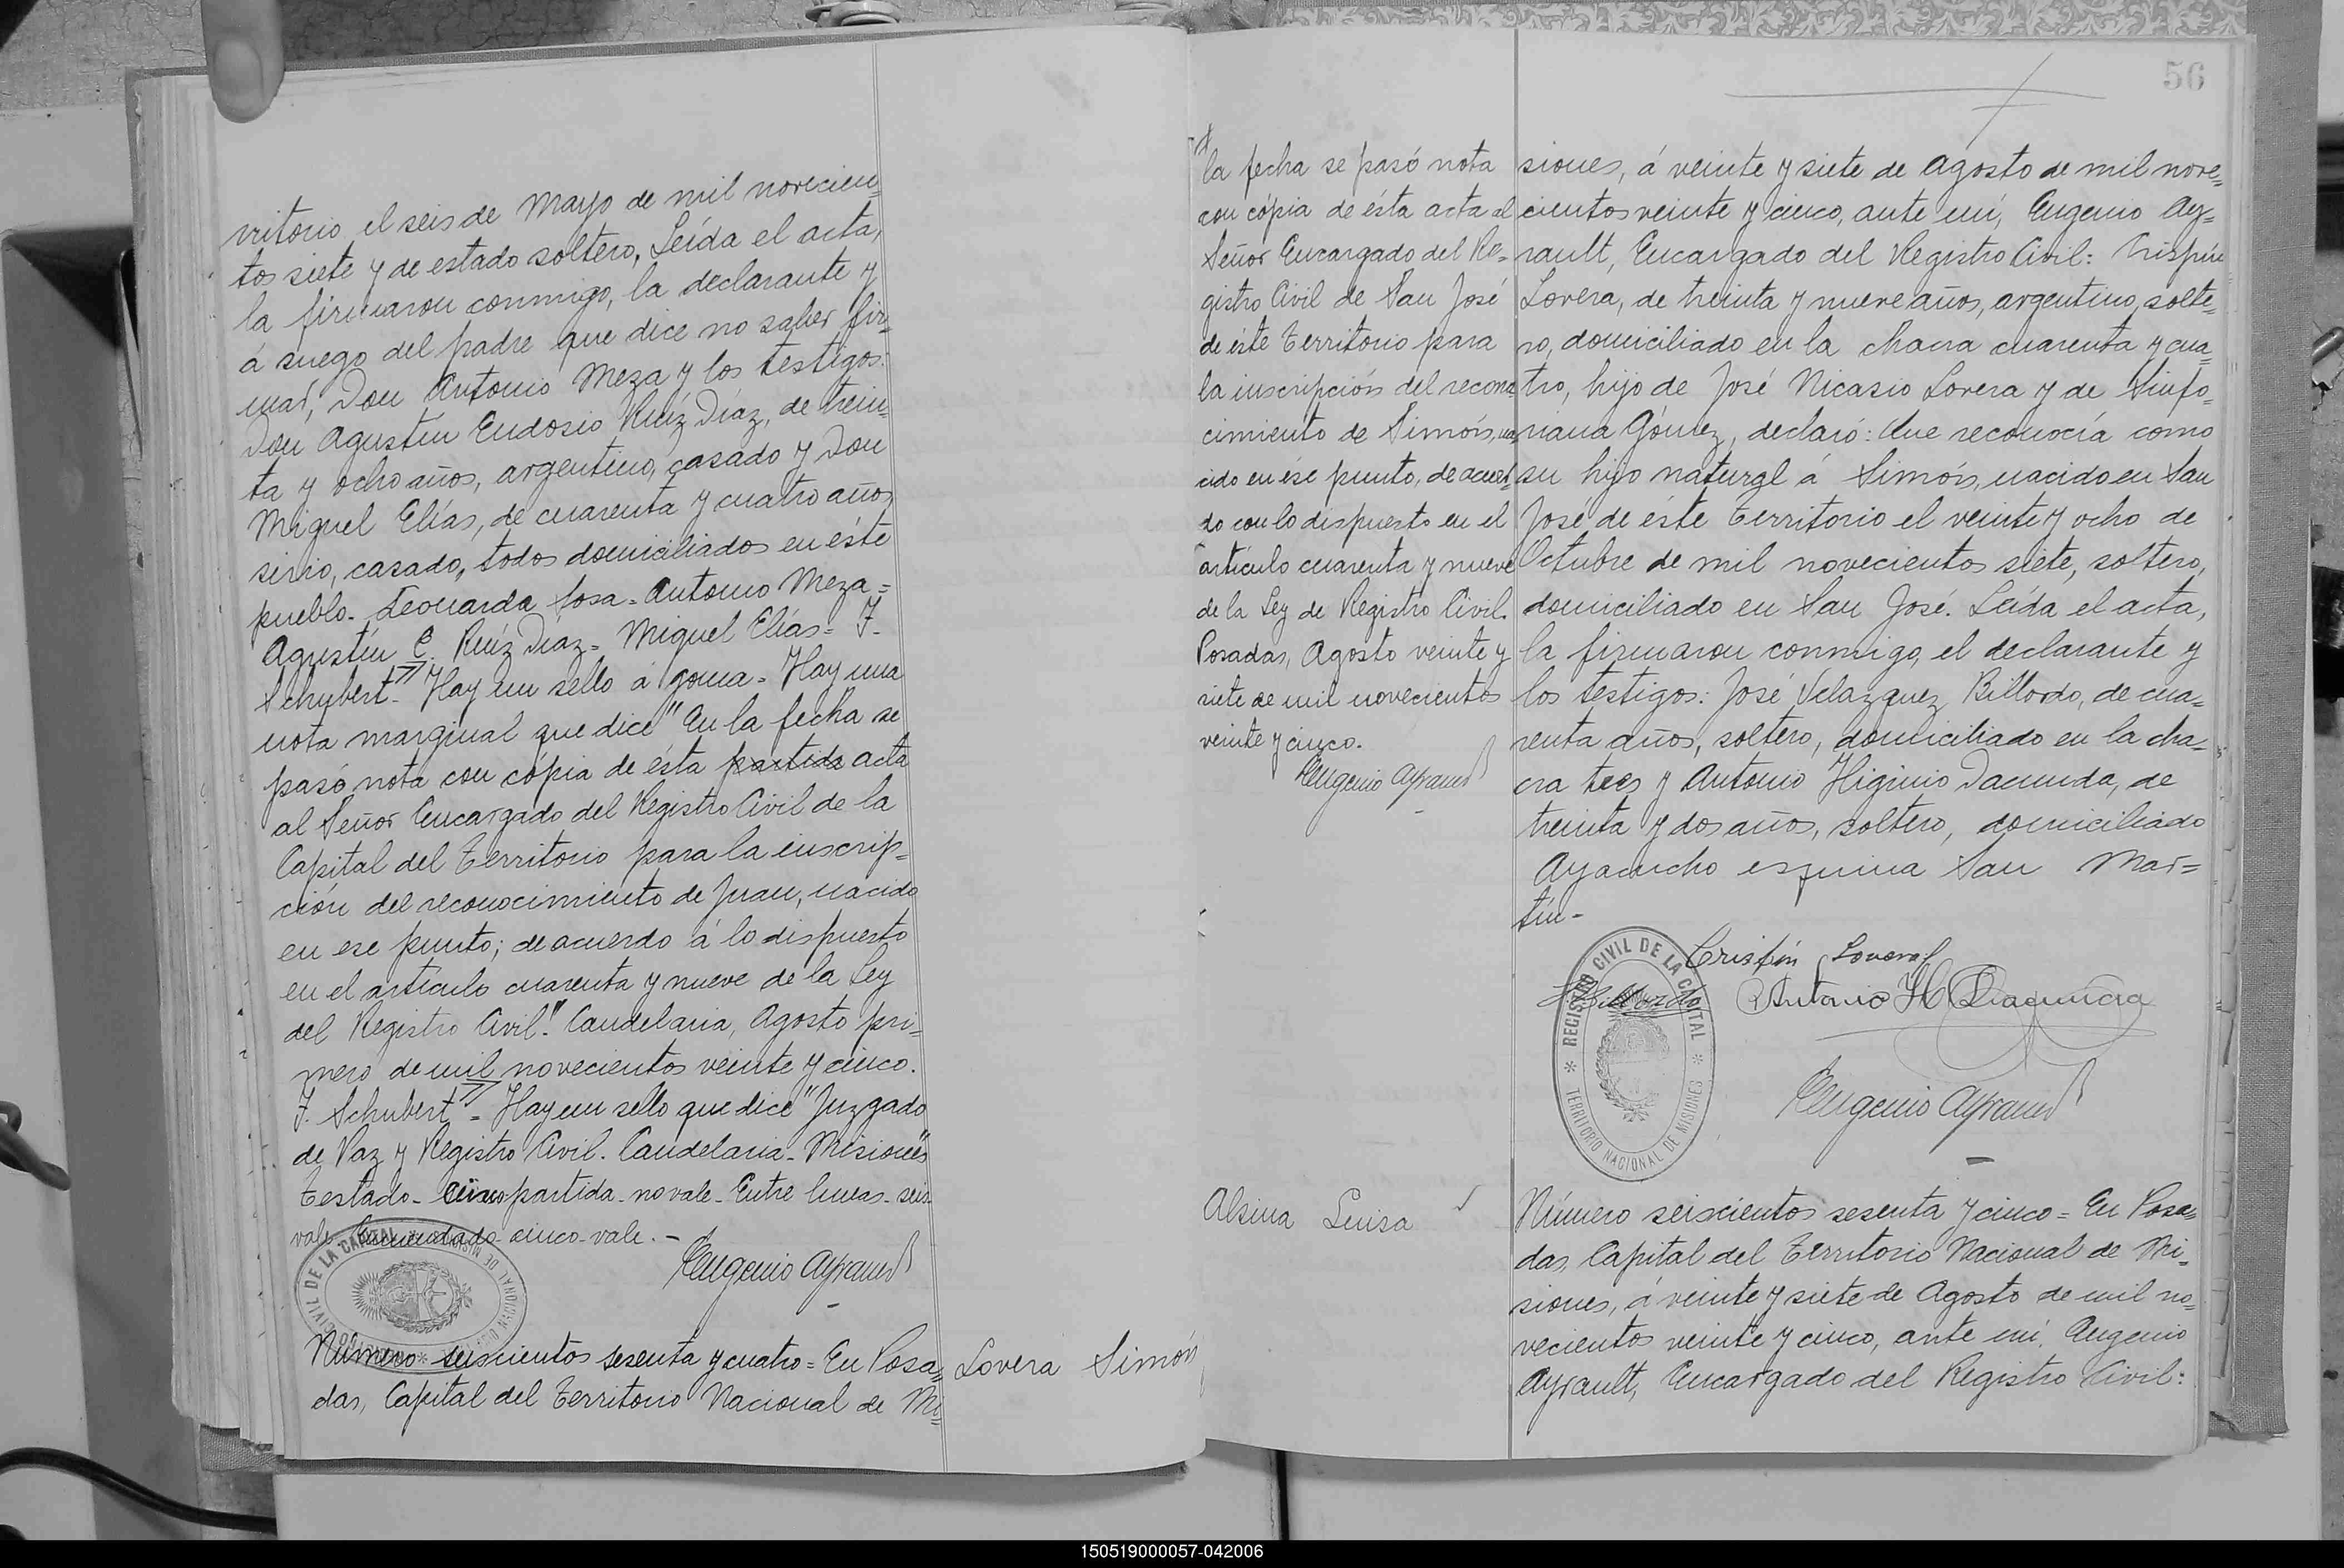 rritorio el seis de Mayo de mil novecien=
tos siete y de estado soltero, Leída el acta,
la firmaron conmigo, la declarante y
á ruego del padre que dice no saber fir=
mar, Don Antonio Meza y los testigos:
Don Agustín Eudosio Ruíz Díaz, de trein=
ta y ocho años, argentino, casado y Don
Miguel Elías, de cuarenta y cuatro años
sirio, casado, todos domiciliados en éste
pueblo. Leonarda Sosa = Antonio Meza =
Agustín E. Ruíz Díaz = Miguel Elías = F.
Schubert = Hay un sello á goma - Hay una
nota marginal que dice "En la fecha se
pasó nota con cópia de ésta partida acta
al Señor Encargado del Registro Civil de la
Capital del Territorio para la inscrip=
ción del reconocimiento de Juan, nacido
en ese punto; de acuerdo á lo dispuesto
en el artículo cuarenta y nueve de la Ley
del Registro Civil." Candelaria, Agosto pri=
mero de mil novecientos veinte y cinco.
F. Schubert" = Hay un sello que dice "Juzgado
de Paz y Registro Civil. Candelaria - Misiones"
Testado - partida - no vale - Entre lineas - seis
vale - Enmendado - cinco - vale. -
Eugenio Ayrault
DE LA CAPITAL
Número seiscientos sesenta y cuatro = En Posa=
das, Capital del Territorio Nacional de Mi=
Lovera Simón
56
la fecha se pasó nota
con cópia de ésta acta al
Señor Encargado del Re=
gistro Civil de San José
de éste Territorio para
la inscripción del recono
cimiento de Simón, na
cido en ése punto, de acuer=
do con lo dispuesto en el
artículo cuarenta y nueve
de la Ley de Registro Civil.
Posadas, Agosto veinte y
siete de mil novecientos
veinte y cinco.
Eugenio Ayrault
siones, á veinte y siete de Agosto de mil nove=
cientos veinte y cinco, ante mí, Eugenio Ay=
rault, Encargado del Registro Civil: Crispín
Lovera, de treinta y nueve años, argentino, solte=
ro, domiciliado en la chacra cuarenta y cua=
tro, hijo de José Nicasio Lovera y de Sinfo=
riana Gómez, declaró: Que reconocía como
su hijo natural á Simón, nacido en San
José de éste Territorio el veinte y ocho de
Octubre de mil novecientos siete, soltero,
domiciliado en San José. Leída el acta,
la firmaron conmigo, el declarante y
los testigos: José Velazquez Billordo, de cua=
renta años, soltero, domiciliado en la cha=
cra tres y Antonio Higinio Dacunda, de
treinta y dos años, soltero, domiciliado
Ayacucho esquina San Mar=
tín -
Crispín Lovera
Billordo
Antonio H Dacunda
REGISTRO CIVIL DE LA CAPITAL
TERRITORIO NACIONAL DE MISIONES
Eugenio Ayrault
Alsina Luisa
Número seiscientos sesenta y cinco = En Posa=
das, Capital del Territorio Nacional de Mi=
siones, á veinte y siete de Agosto de mil no=
vecientos veinte y cinco, ante mí, Eugenio
Ayrault, Encargado del Registro Civil:
150519000057-042006